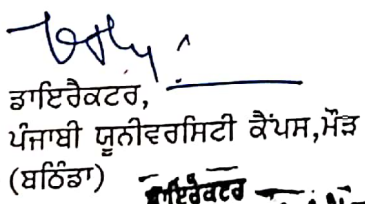 ਡਾਇਰੈਕਟਰ,
ਪੰਜਾਬੀ ਯੂਨੀਵਰਸਿਟੀ ਕੈਂਪਸ,ਮੌੜ
(ਬਠਿੰਡਾ)
ਡਾਇਰੈਕਟਰ